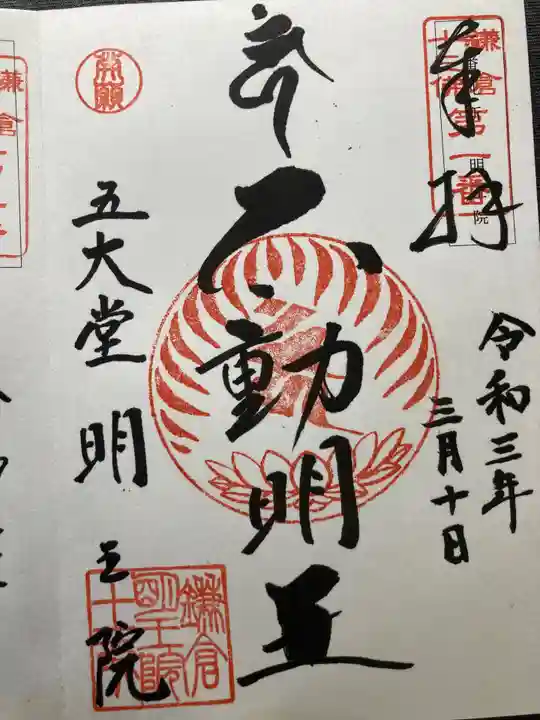 奉拝
鎌倉
十三佛第一番
明王院
令和三年
三月十日
不動明王
五大堂明王院
発願
鎌倉